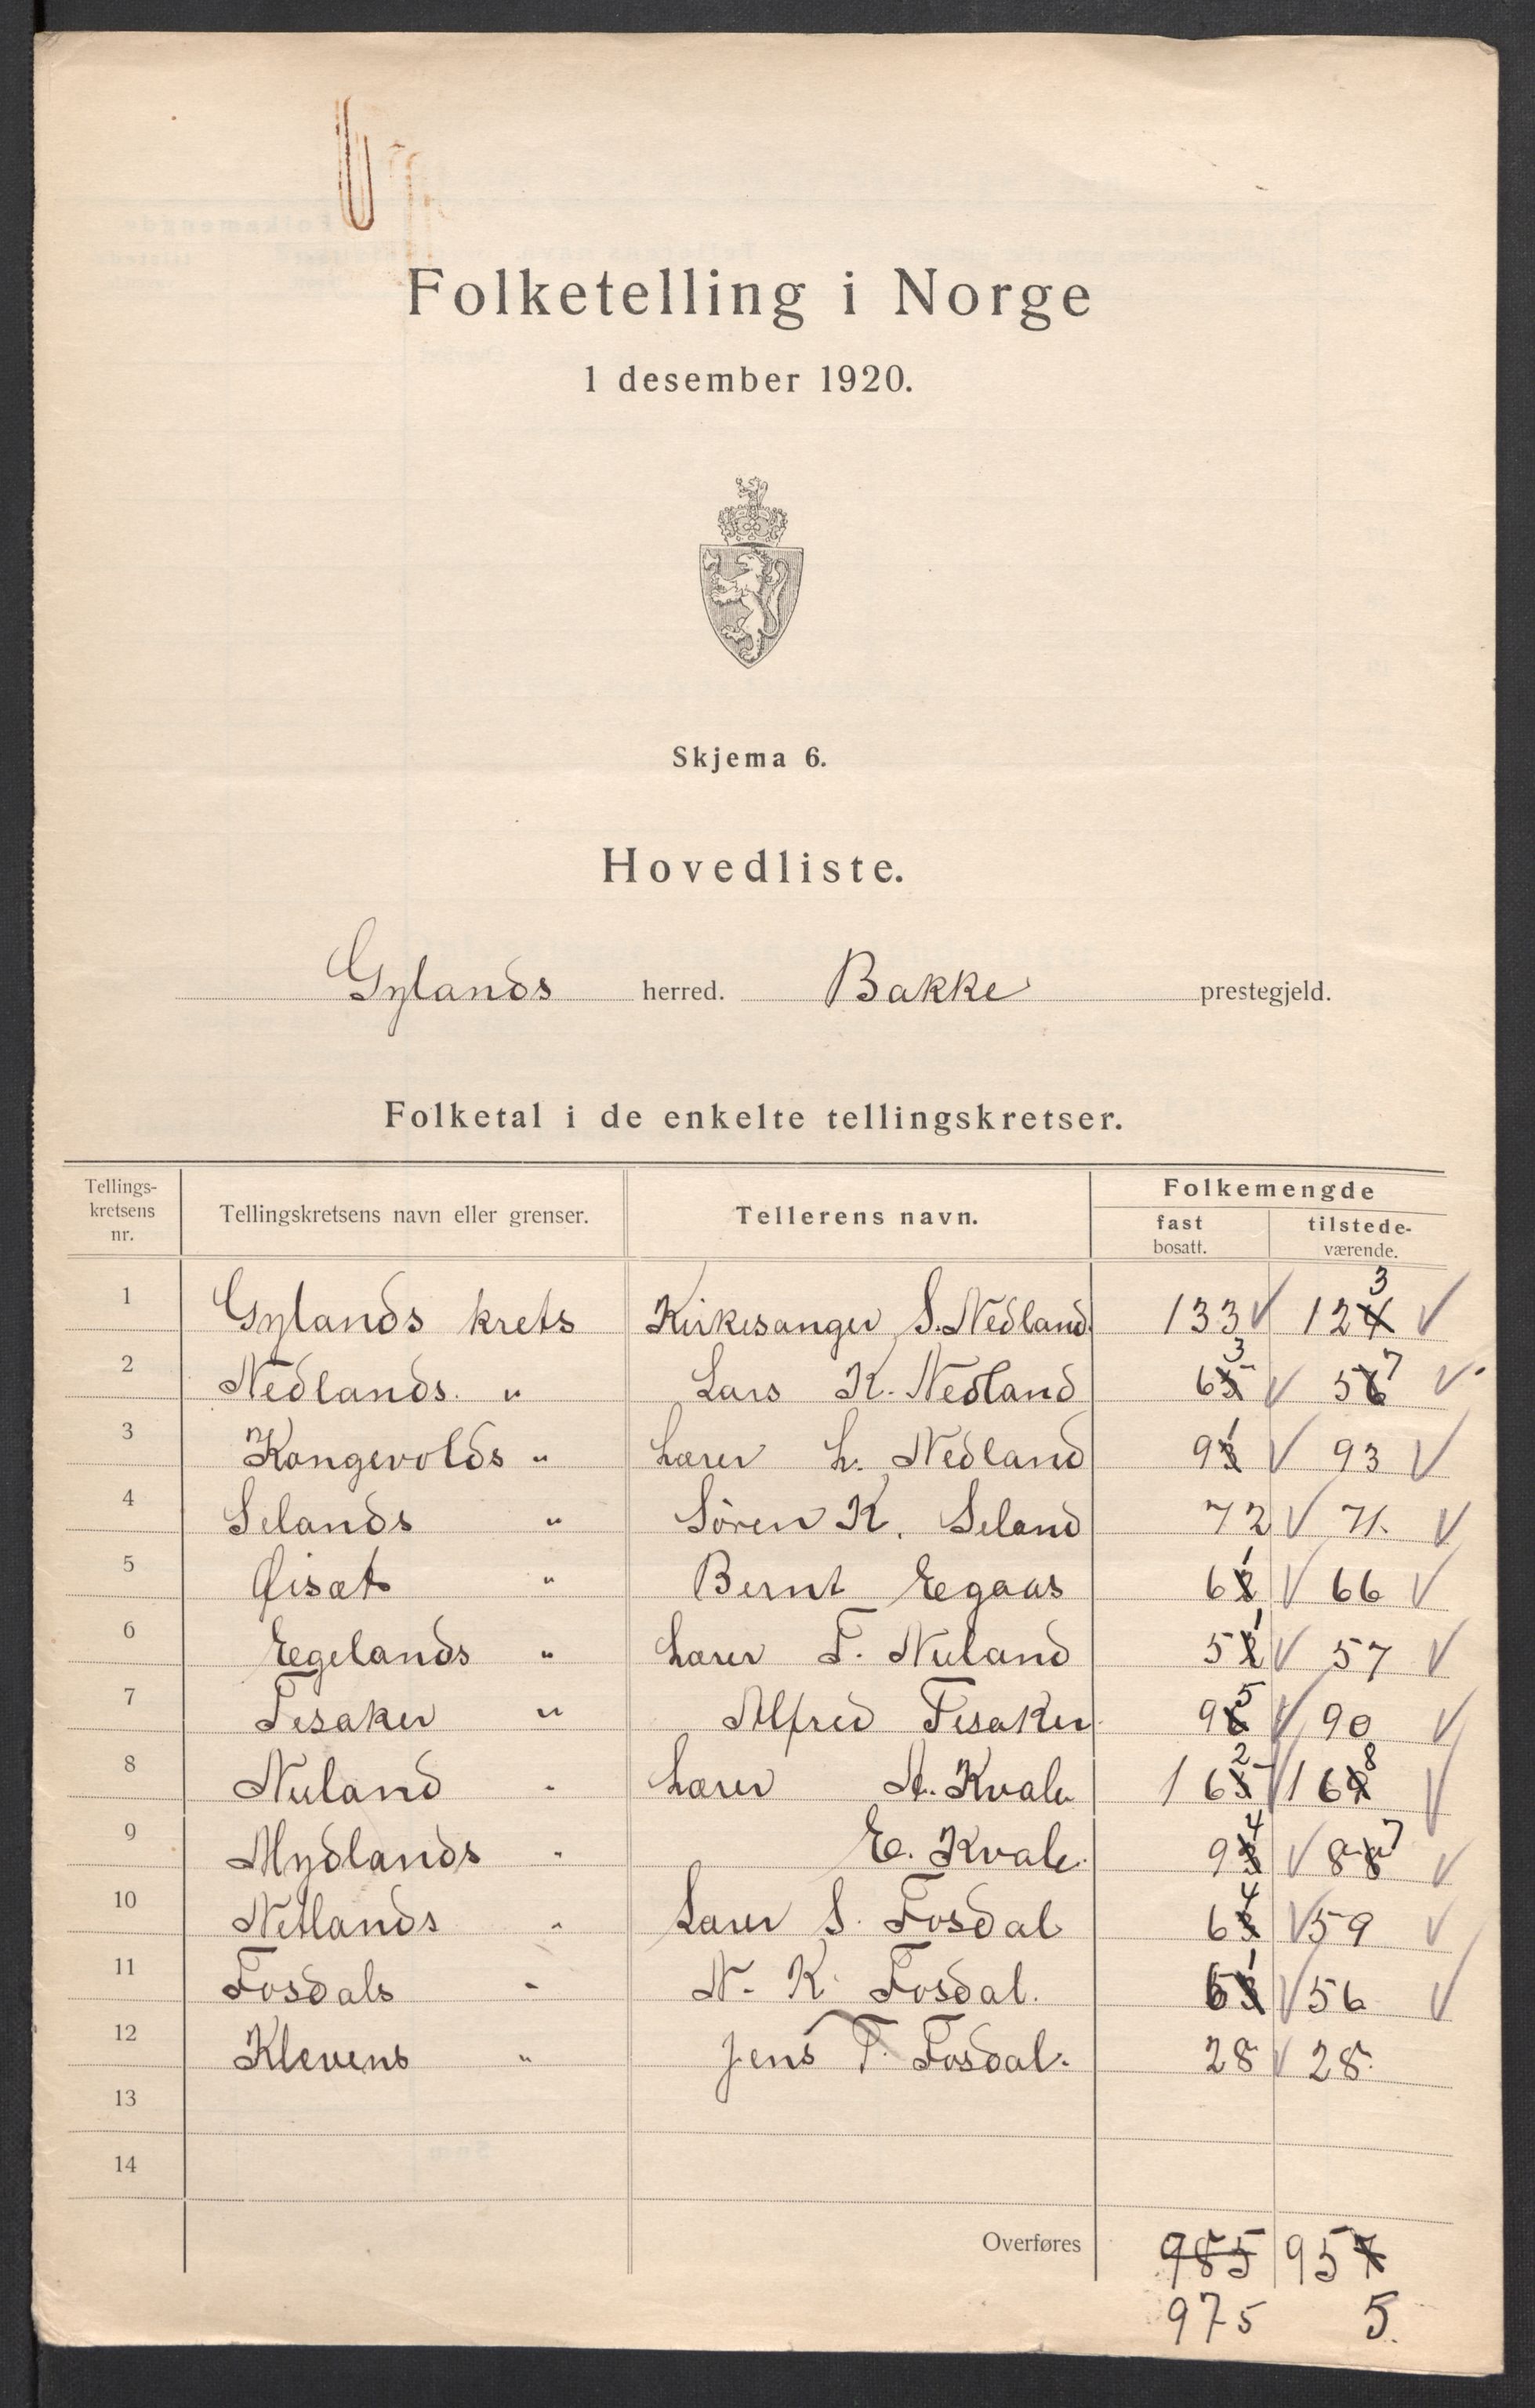 Folketelling i Norge
1 desember 1920.
Skjema 6.
Hovedliste.
Gylands herred. Bakke prestegjeld.
Folketal i de enkelte tellingskretser.
Tellings-kretsens nr. Tellingskretsens navn eller grenser. Tellerens navn. Folkemengde
fast bosatt. tilstede-værende.
1 Gylands krets Kirkesanger S. Nedland 133 ✓ 124 3 ✓
2 Nedlands " Lars K. Nedland 65 3 ✓ 56 7 ✓
3 Kongevolds " Lærer L. Nedland 93 1 ✓ 93 ✓
4 Selands " Sören K. Seland 72 ✓ 71. ✓
5 Øisæt " Bernt Eegaas 62 1 ✓ 66 ✓
6 Eegelands " Lærer T. Nuland 52 1 ✓ 57 ✓
7 Fesaker " Alfred Fesaker 96 5 ✓ 90 ✓
8 Nuland " Lærer A. Kvale 165 2 ✓ 169 8 ✓
9 Mydlands " E. Kvale. 93 4 ✓ 88 7 ✓
10 Netlands " Lærer S. Fosdal 63 4 ✓ 59 ✓
11 Fosdals " N. K. Fosdal. 63 1 ✓ 56 ✓
12 Klevens " Jens T. Fosdal. 28 ✓ 28.
13
14
Overføres 985 957
975 5.